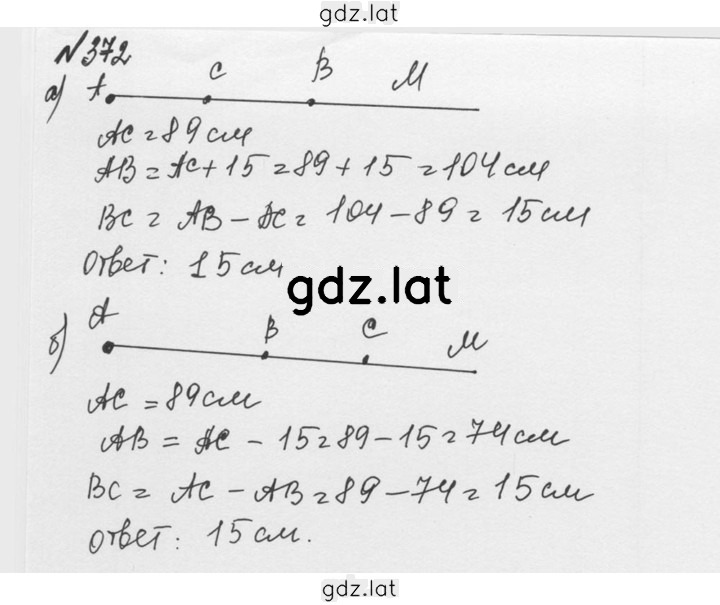 gdz.lat
№372
а) A C B M
AC = 89 см
AB = AC + 15 = 89 + 15 = 104 см
BC = AB - AC = 104 - 89 = 15 см
Ответ: 15 см
gdz.lat
б) A B C M
AC = 89 см
AB = AC - 15 = 89 - 15 = 74 см
BC = AC - AB = 89 - 74 = 15 см
Ответ: 15 см.
gdz.lat